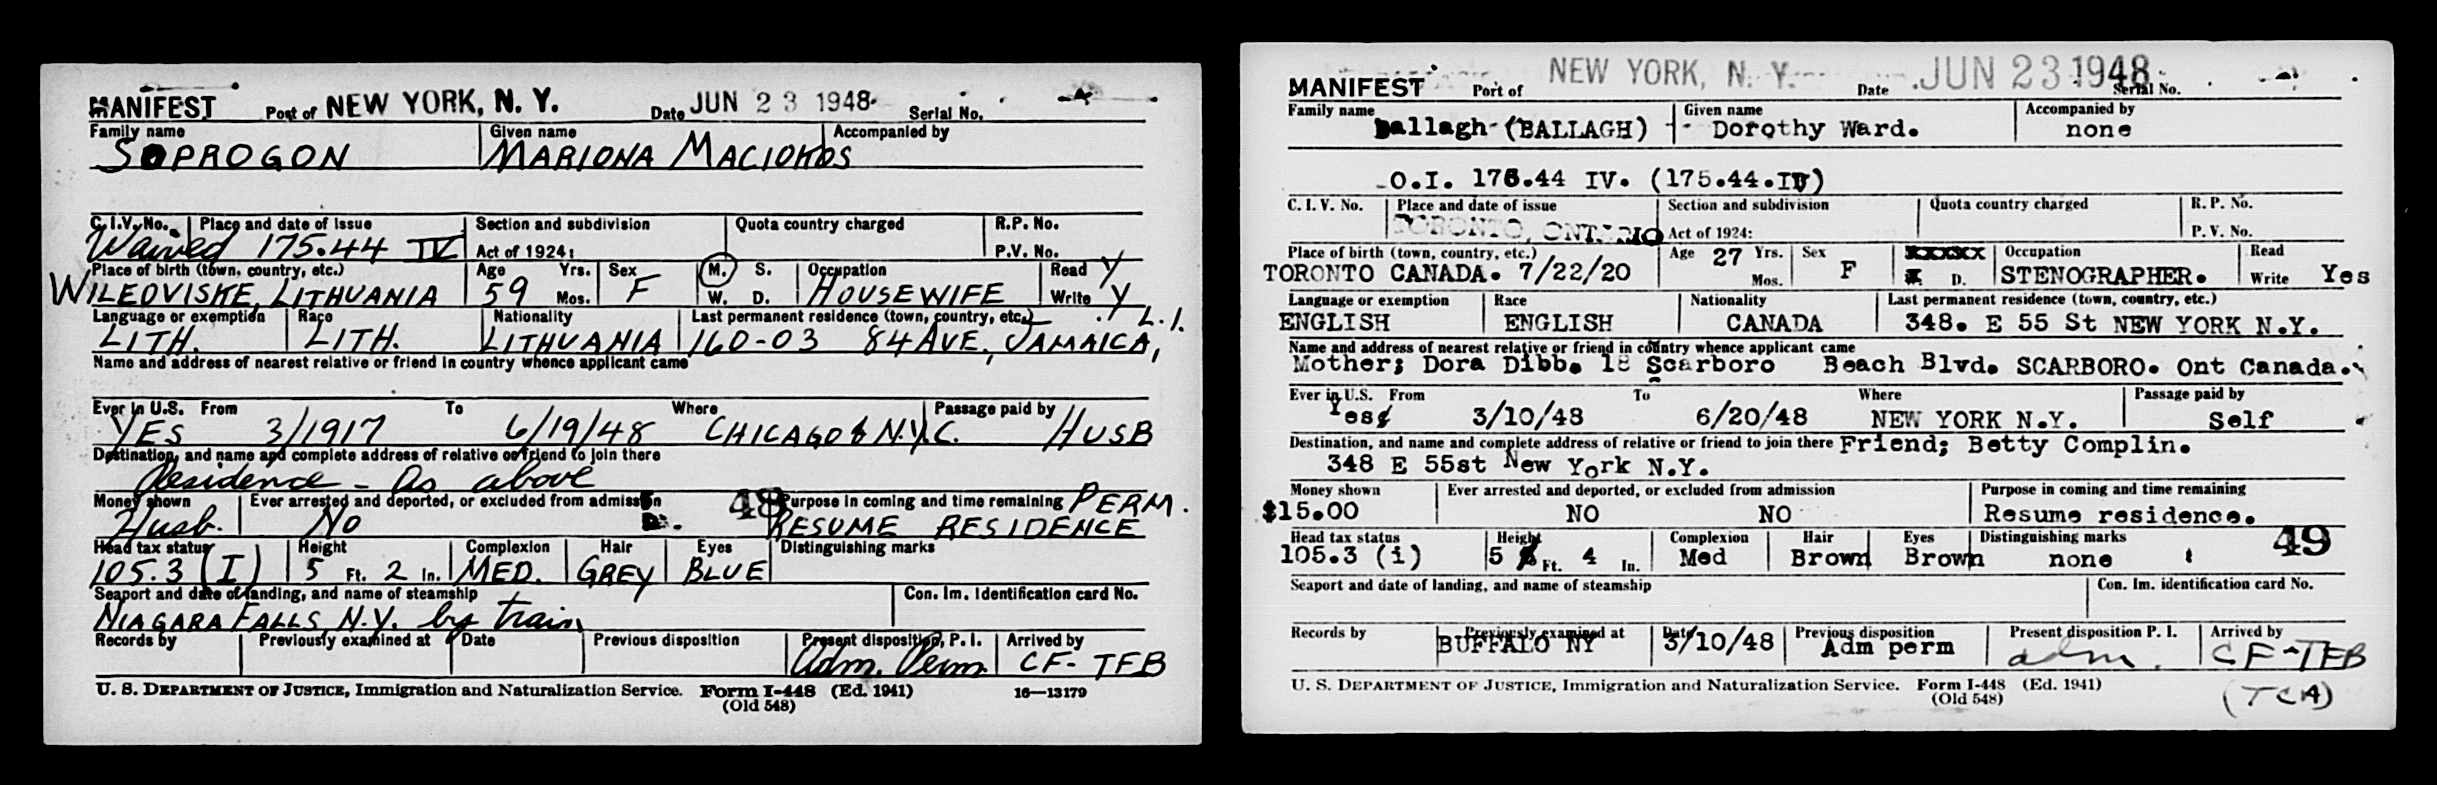 MANIFEST Port of NEW YORK, N. Y. Date JUN 23 1948 Serial No.
Family name Given name Accompanied by
SOPROGON MARIONA MACIOKOS
C.I.V. No. Place and date of issue Section and subdivision Quota country charged R.P. No.
Waived 175.44 IV Act of 1924: P.V. No.
Place of birth (town, country, etc.) Age Yrs. Sex M. S. Occupation Read Y
WILEOVISKE, LITHUANIA 59 Mos. F W. D. HOUSEWIFE Write Y
Language or exemption Race Nationality Last permanent residence (town, country, etc.) L.I.
LITH. LITH. LITHUANIA 160-03 84 AVE., JAMAICA,
Name and address of nearest relative or friend in country whence applicant came
Ever in U.S. From To Where Passage paid by
YES 3/1917 6/19/48 CHICAGO & N.Y.C. HUSB
Destination, and name and complete address of relative or friend to join there
Residence - As above
Money shown Ever arrested and deported, or excluded from admission 48 Purpose in coming and time remaining PERM.
Husb. No RESUME RESIDENCE
Head tax status Height Complexion Hair Eyes Distinguishing marks
105.3 (I) 5 Ft. 2 In. MED. GREY BLUE
Seaport and date of landing, and name of steamship Con. Im. Identification card No.
NIAGARA FALLS N.Y. by train
Records by Previously examined at Date Previous disposition Present disposition, P. I. Arrived by
Adm. Perm CF- TFB
U. S. DEPARTMENT OF JUSTICE, Immigration and Naturalization Service. Form I-448 (Ed. 1941) 16—13179
(Old 548)
MANIFEST Port of NEW YORK, N. Y. Date JUN 23 1948 Serial No.
Family name Given name Accompanied by
Ballagh (BALLAGH) Dorothy Ward. none
O.I. 175.44 IV. (175.44.IV)
C. I. V. No. Place and date of issue Section and subdivision Quota country charged R. P. No.
TORONTO, ONTARIO Act of 1924: P. V. No.
Place of birth (town, country, etc.) Age 27 Yrs. Sex XXXXX Occupation Read
TORONTO CANADA. 7/22/20 Mos. F D. STENOGRAPHER. Write Yes
Language or exemption Race Nationality Last permanent residence (town, country, etc.)
ENGLISH ENGLISH CANADA 348. E 55 St NEW YORK N.Y.
Name and address of nearest relative or friend in country whence applicant came
Mother; Dora Dibb. 18 Scarboro Beach Blvd. SCARBORO. Ont Canada.
Ever in U.S. From To Where Passage paid by
Yes 3/10/48 6/20/48 NEW YORK N.Y. Self
Destination, and name and complete address of relative or friend to join there Friend; Betty Complin.
348 E 55st New York N.Y.
Money shown Ever arrested and deported, or excluded from admission Purpose in coming and time remaining
$15.00 NO NO Resume residence.
Head tax status Height Complexion Hair Eyes Distinguishing marks 49
105.3 (i) 5 Ft. 4 In. Med Brown Brown none
Seaport and date of landing, and name of steamship Con. Im. identification card No.
Records by Previously examined at Date Previous disposition Present disposition P. I. Arrived by
BUFFALO NY 3/10/48 Adm perm adm. CF-TFB
U. S. DEPARTMENT OF JUSTICE, Immigration and Naturalization Service. Form I-448 (Ed. 1941) (TCA)
(Old 548)